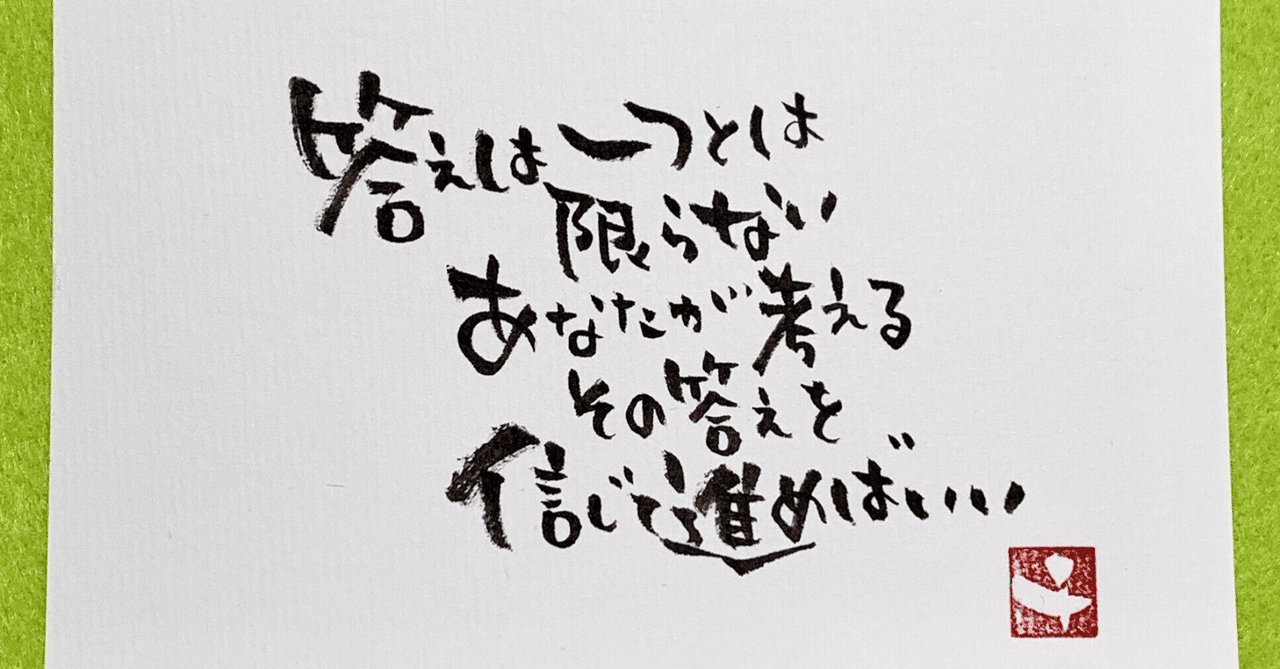 答えは一つとは
限らない
あなたが考える
その答えを
信じて進めばいい